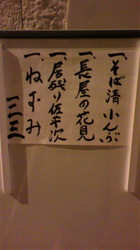 一、そば清 小んぶ
一、長屋の花見
一、居残り佐平次
一、ねずみ
一二三